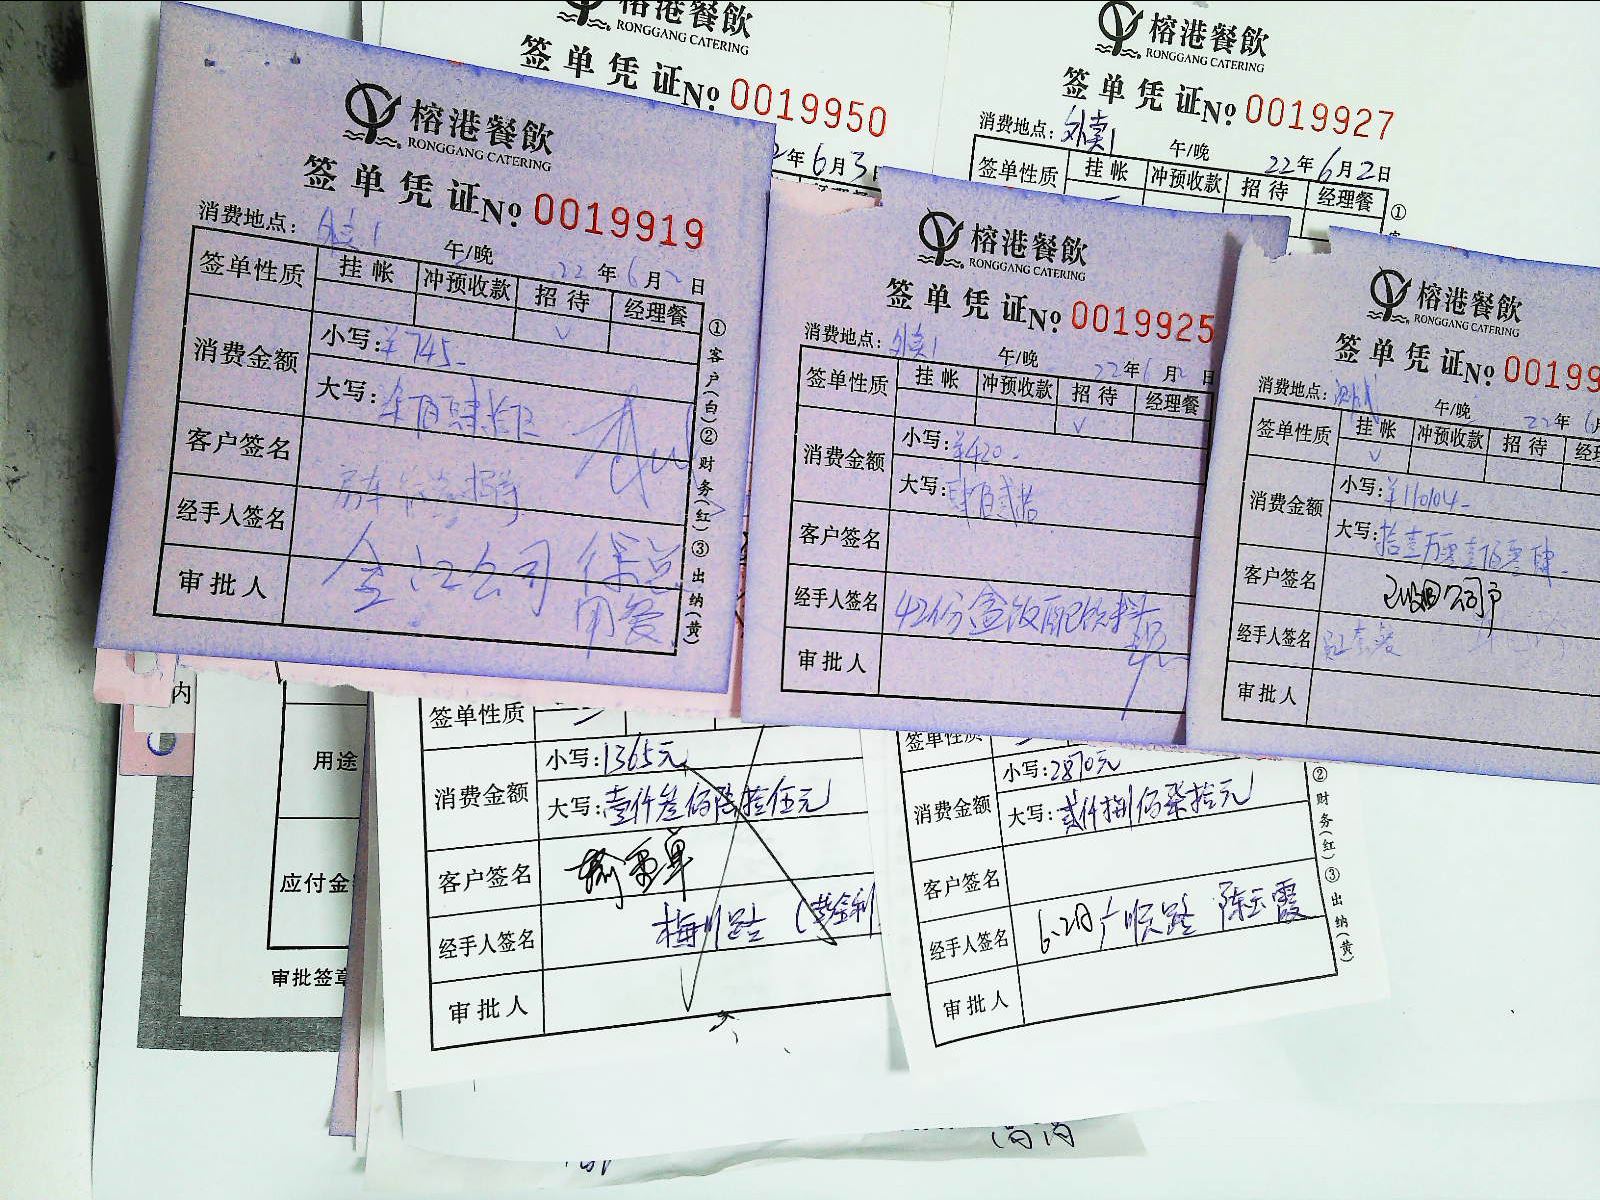 榕港餐飲
RONGGANG CATERING
签单凭证 No 0019950
年6月3日
榕港餐飲
RONGGANG CATERING
签单凭证 No 0019927
消费地点：外卖1
午/晚 22年6月2日
签单性质 挂帐 冲预收款 招待 经理餐
①
榕港餐飲
RONGGANG CATERING
签单凭证 No 0019919
消费地点：外卖1
午/晚 22年6月2日
签单性质 挂帐 冲预收款 招待 经理餐
√
消费金额 小写：¥745-
大写：柒佰肆拾伍
客户签名
经手人签名
金江公司
审批人 用餐
①客户(白)②财务(红)③出纳(黄)
榕港餐飲
RONGGANG CATERING
签单凭证 No 0019925
消费地点：外卖1
午/晚 22年6月2日
签单性质 挂帐 冲预收款 招待 经理餐
√
消费金额 小写：¥420-
大写：肆佰贰拾
客户签名
经手人签名 42份盒饭配饮料
审批人
榕港餐飲
RONGGANG CATERING
签单凭证 No 00199
消费地点：
午/晚 22年6
签单性质 挂帐 冲预收款 招待 经理
√
消费金额 小写：¥110104-
大写：拾壹万零壹佰零肆
客户签名
经手人签名
审批人
内
用途
应付金
审批签章
签单性质
消费金额 小写：1365元
大写：壹仟叁佰陆拾伍元
客户签名
经手人签名 梅川路
审批人
签单性质
消费金额 小写：2870元
大写：贰仟捌佰柒拾元
客户签名
经手人签名 6.2日广顺路 陈玉霞
审批人
②财务(红)③出纳(黄)